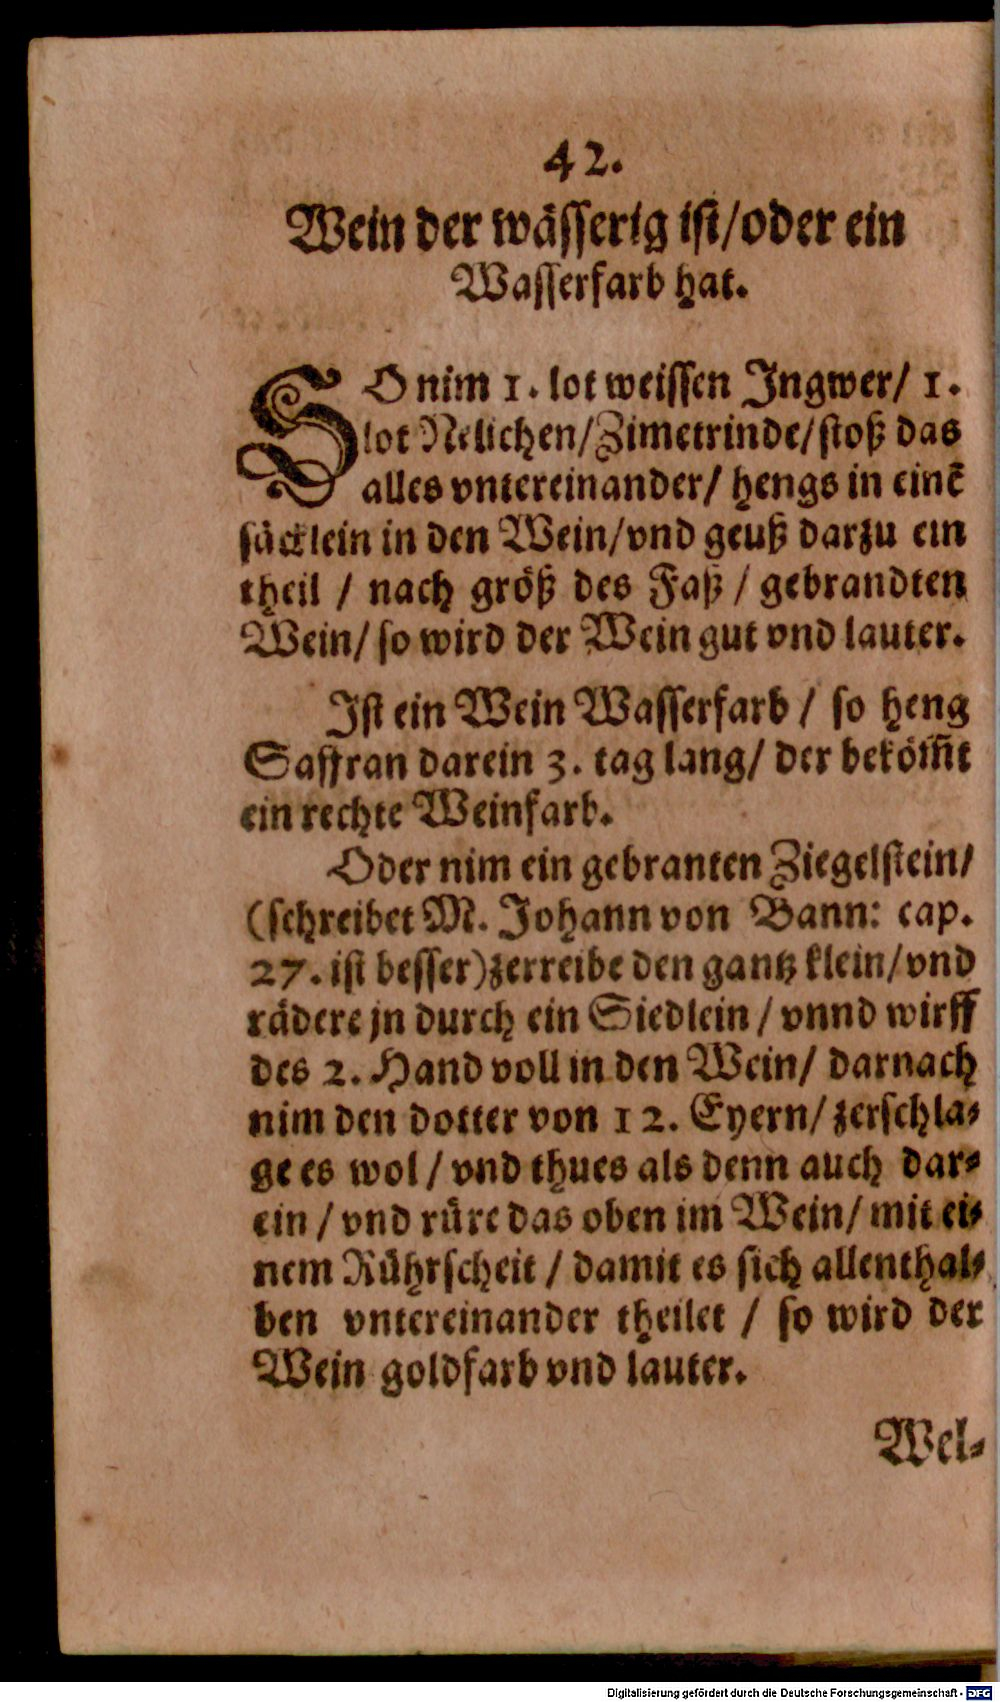 42.
Wein der wässerig ist/oder ein
Wasserfarb hat.
SO nim 1. lot weissen Ingwer/ 1.
lot Nelichen/Zimetrinde/stoß das
alles vntereinander/ hengs in einẽ
säcklein in den Wein/vnd geuß darzu ein
theil / nach größ des Faß / gebrandten
Wein/ so wird der Wein gut vnd lauter.
Ist ein Wein Wasserfarb / so heng
Saffran darein 3. tag lang/ der beköm̃t
ein rechte Weinfarb.
Oder nim ein gebranten Ziegelstein/
(schreibet M. Johann von Bann: cap.
27. ist besser)zerreibe den gantz klein/vnd
rädere jn durch ein Siedlein / vnnd wirff
des 2. Hand voll in den Wein/ darnach
nim den dotter von 12. Eyern/ zerschla-
ge es wol / vnd thues als denn auch dar-
ein / vnd rüre das oben im Wein/ mit ei-
nem Rührscheit / damit es sich allenthal-
ben vntereinander theilet / so wird der
Wein goldfarb vnd lauter.
Wel-
Digitalisierung gefördert durch die Deutsche Forschungsgemeinschaft - DFG